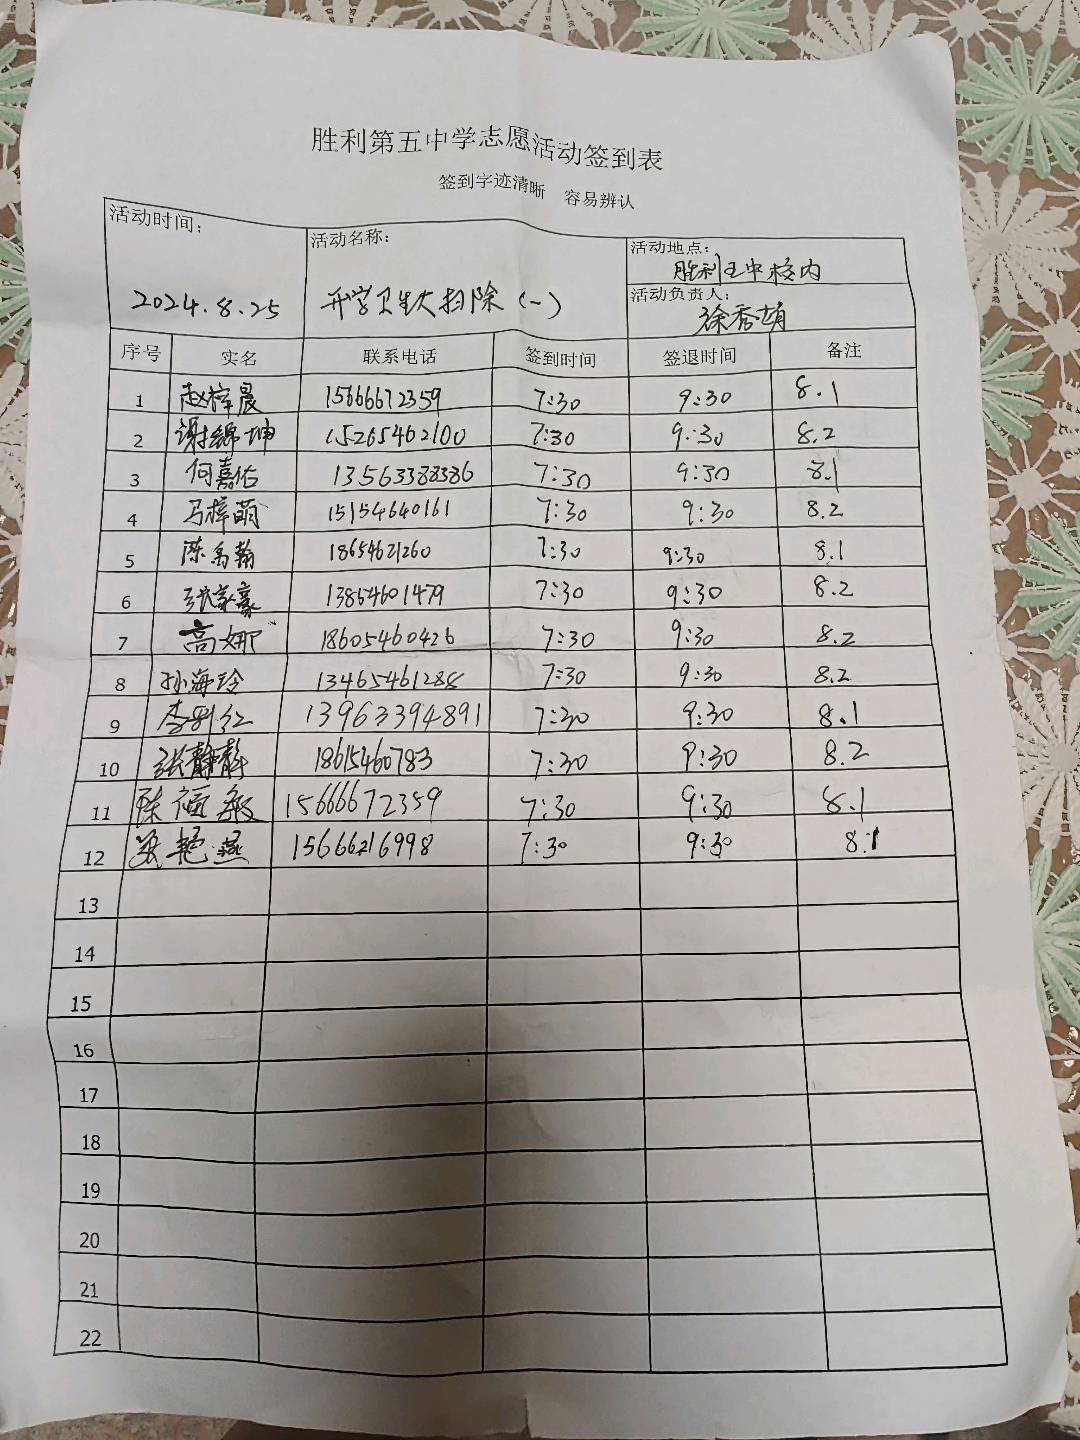 胜利第五中学志愿活动签到表
签到字迹清晰 容易辨认
活动时间: 2024.8.25
活动名称: 开学卫生大扫除(一)
活动地点: 胜利五中校内
活动负责人: 徐秀娟
序号 实名 联系电话 签到时间 签退时间 备注
1 赵梓晨 15666672359 7:30 9:30 8.1
2 谢锦坤 15265462100 7:30 9:30 8.2
3 何嘉佑 13563388386 7:30 9:30 8.1
4 马梓萌 15154640161 7:30 9:30 8.2
5 陈禹翰 18654621260 7:30 9:30 8.1
6 张家豪 13864601479 7:30 9:30 8.2
7 高娜 18605460426 7:30 9:30 8.2
8 孙海玲 13465461288 7:30 9:30 8.2
9 李红 13963394891 7:30 9:30 8.1
10 张静静 18615460783 7:30 9:30 8.2
11 陈敏 15666672359 7:30 9:30 8.1
12 艳燕 15666216998 7:30 9:30 8.1
13
14
15
16
17
18
19
20
21
22